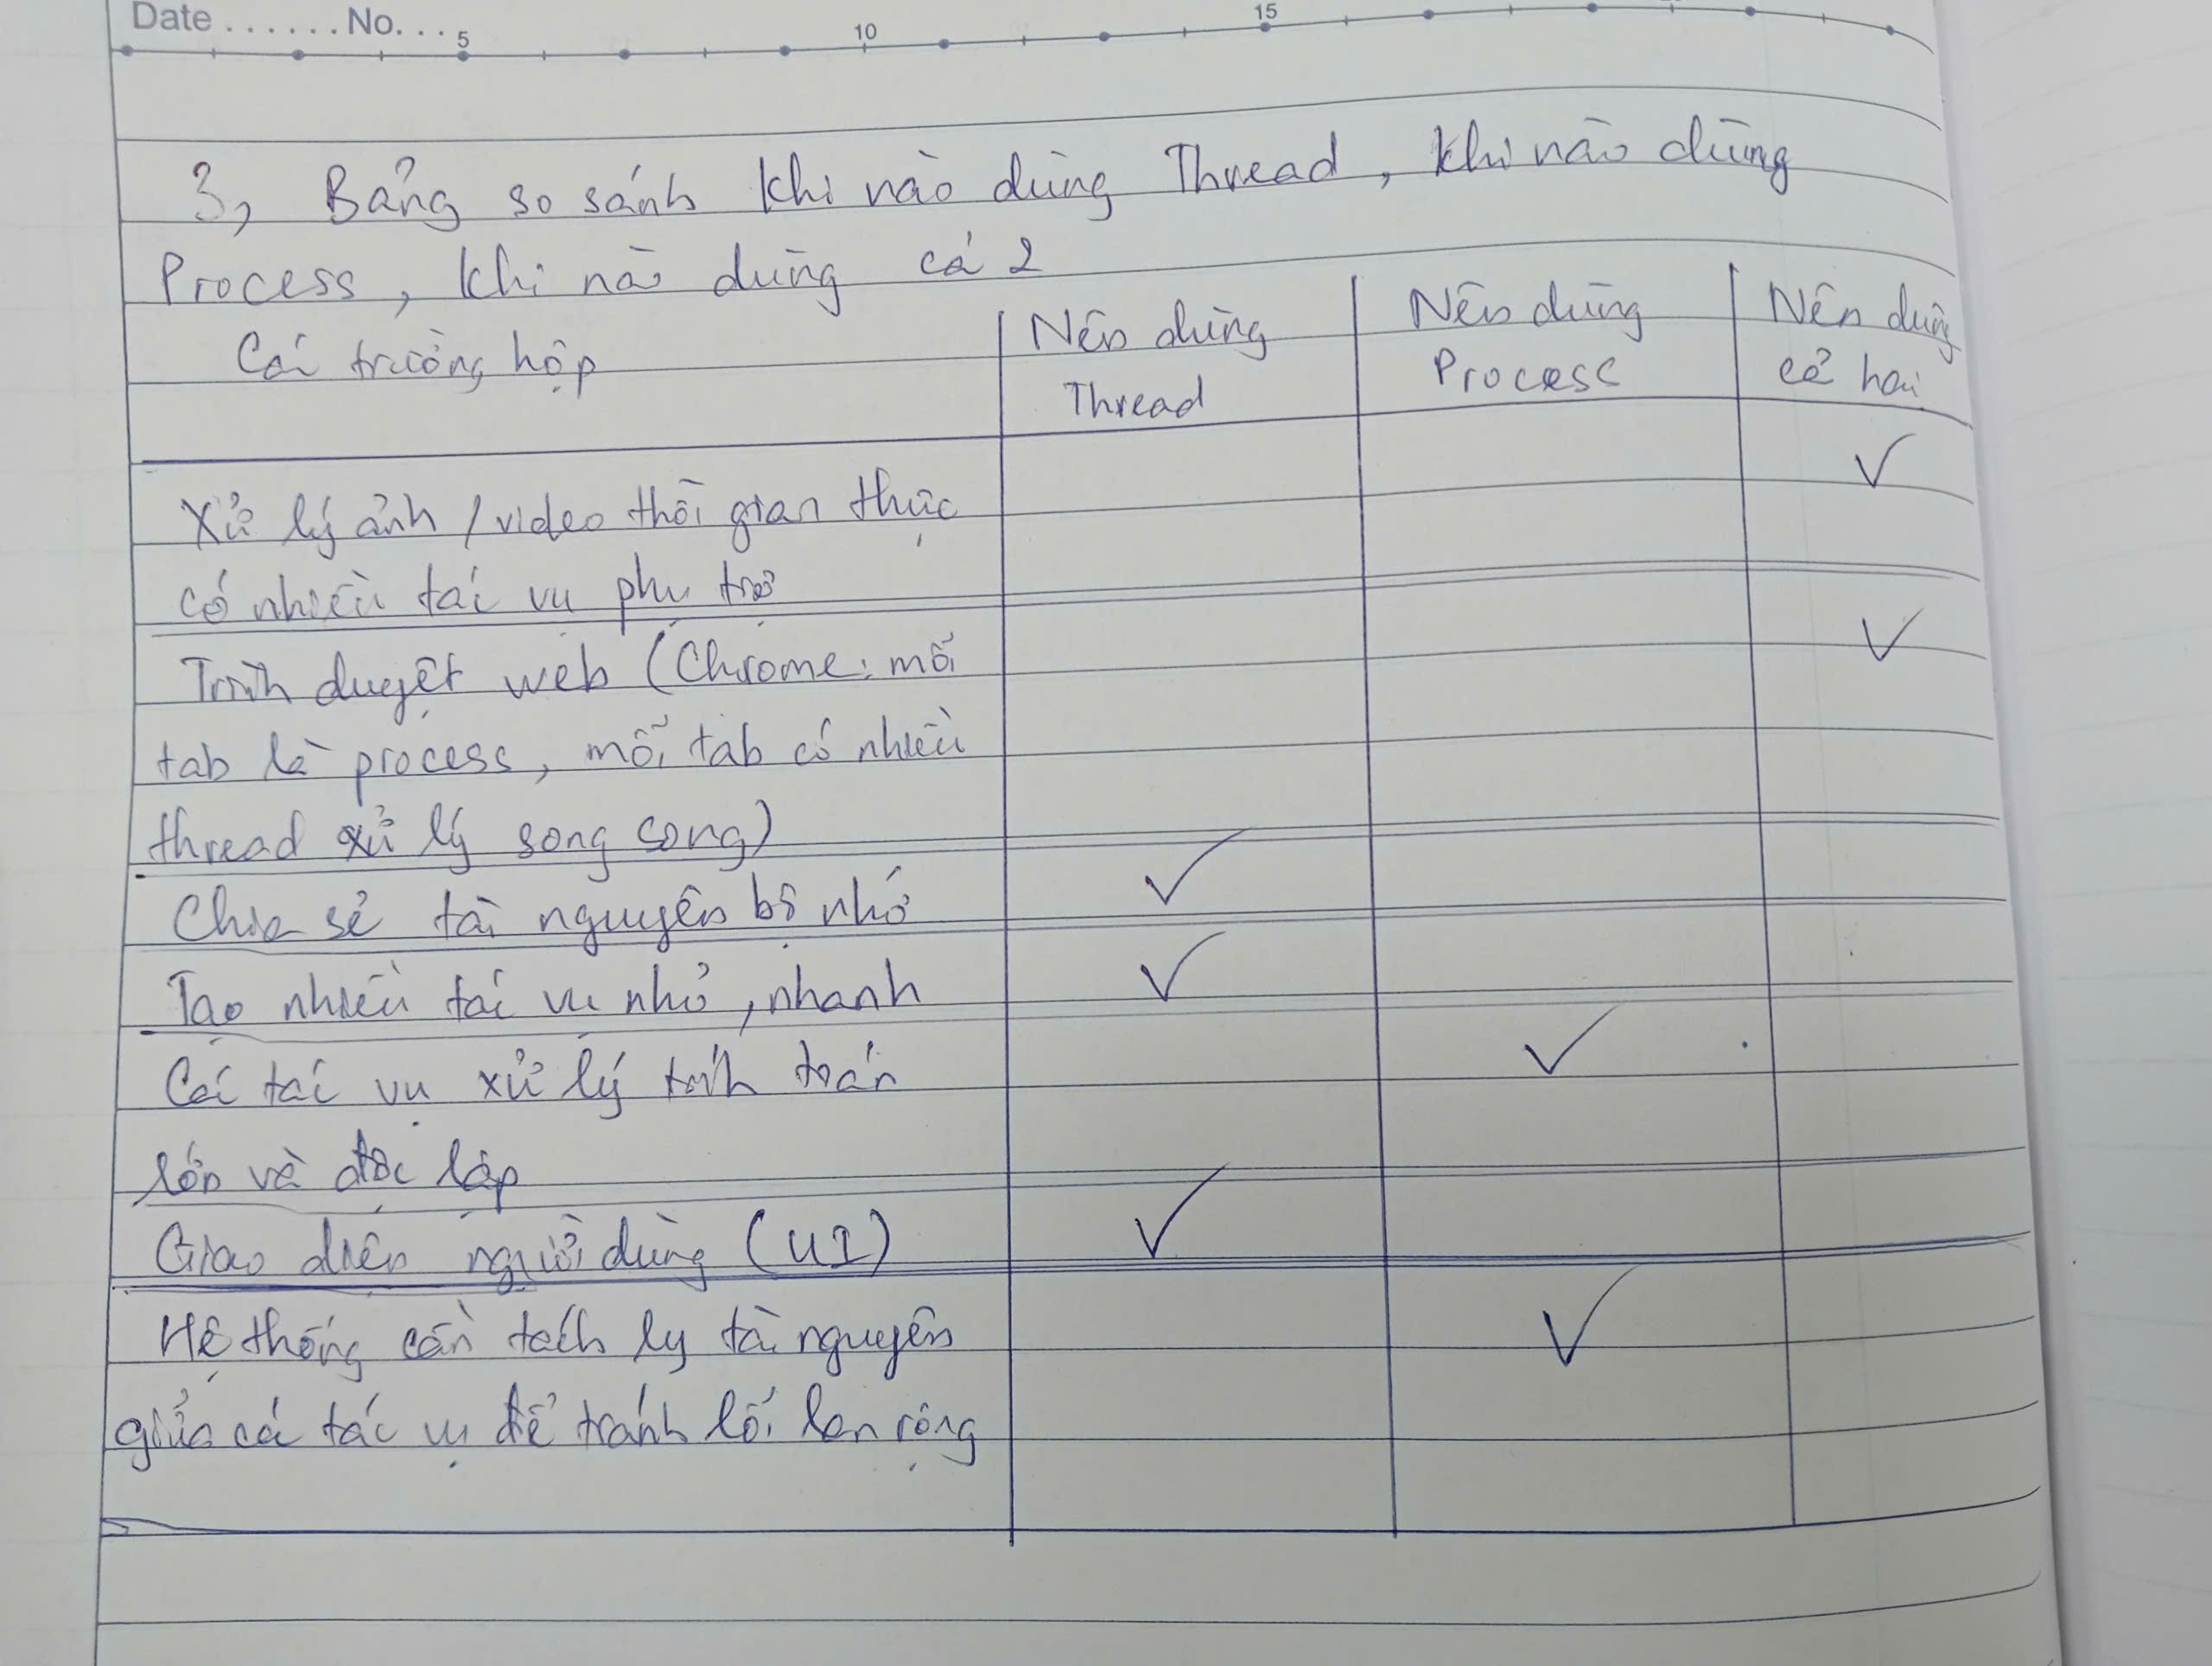 Date ...... No. ... 5 10 15
3, Bảng so sánh khi nào dùng Thread, khi nào dùng
Process, khi nào dùng cả 2
Các trường hợp
Nên dùng Thread
Nên dùng Process
Nên dùng cả hai
Xử lý ảnh / video thời gian thực
✓
có nhiều tác vụ phụ trợ
Trình duyệt web (Chrome: mỗi
✓
tab là process, mỗi tab có nhiều
thread xử lý song song)
Chia sẻ tài nguyên bộ nhớ
✓
Tạo nhiều tác vụ nhỏ, nhanh
✓
Các tác vụ xử lý tính toán
✓
lớn và độc lập
Giao diện người dùng (UI)
✓
Hệ thống cần tách ly tài nguyên
✓
giữa các tác vụ để tránh lỗi lan rộng